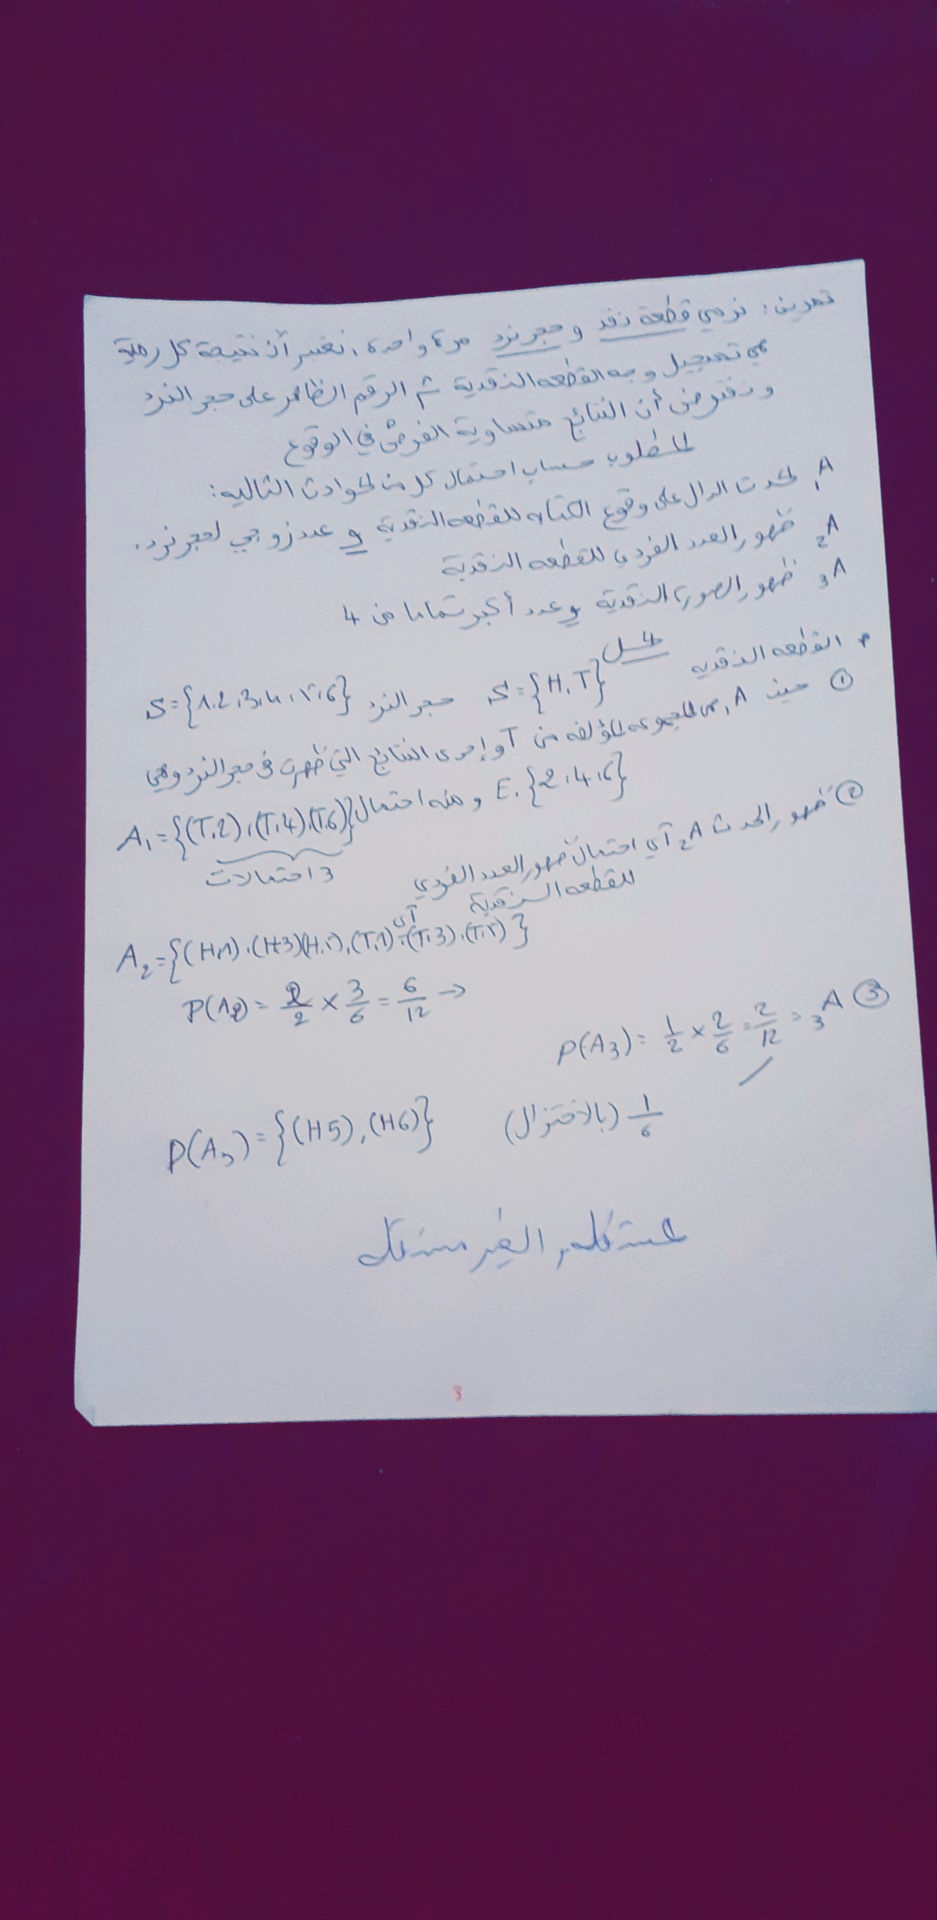 تمرين: نرمي قطعة نقد و حجر نرد مرة واحدة، نعتبر أن نتيجة كل رمية
هي تسجيل وجه القطعة النقدية ثم الرقم الظاهر على حجر النرد
و نفترض أن النتائج متساوية الفرص في الوقوع
المطلوب حساب احتمال كل من الحوادث التالية:
A1 الحدث الدال على وقوع الكتابة للقطعة النقدية و عدد زوجي لحجر نرد.
A2 ظهور العدد الفردي للقطعه النقدية
A3 ظهور الصورة النقدية و عدد أكبر تماما من 4
الحل
القطعه النقديه S={H,T} حجر النرد S={1,2,3,4,5,6}
① حيث A1 هي المجموعه المؤلفه من T و إحدى النتائج التي ظهرت في حجر النرد وهي
E.{2,4,6} و منه احتمال A1={(T,2),(T,4),(T,6)}
3 احتمالات
② ظهور الحدث A2 أي احتمال ظهور العدد الفردي
للقطعه النقدية
أي
A2={(H,1),(H,3)(H,5),(T,1),(T,3),(T,5)}
P(A2)= 2/2 × 3/6 = 6/12 →
③ A3 = P(A3)= 1/2 × 2/6 = 2/12
1/6 (بالاختزال) P(A3)={(H5),(H6)}
الغير
3